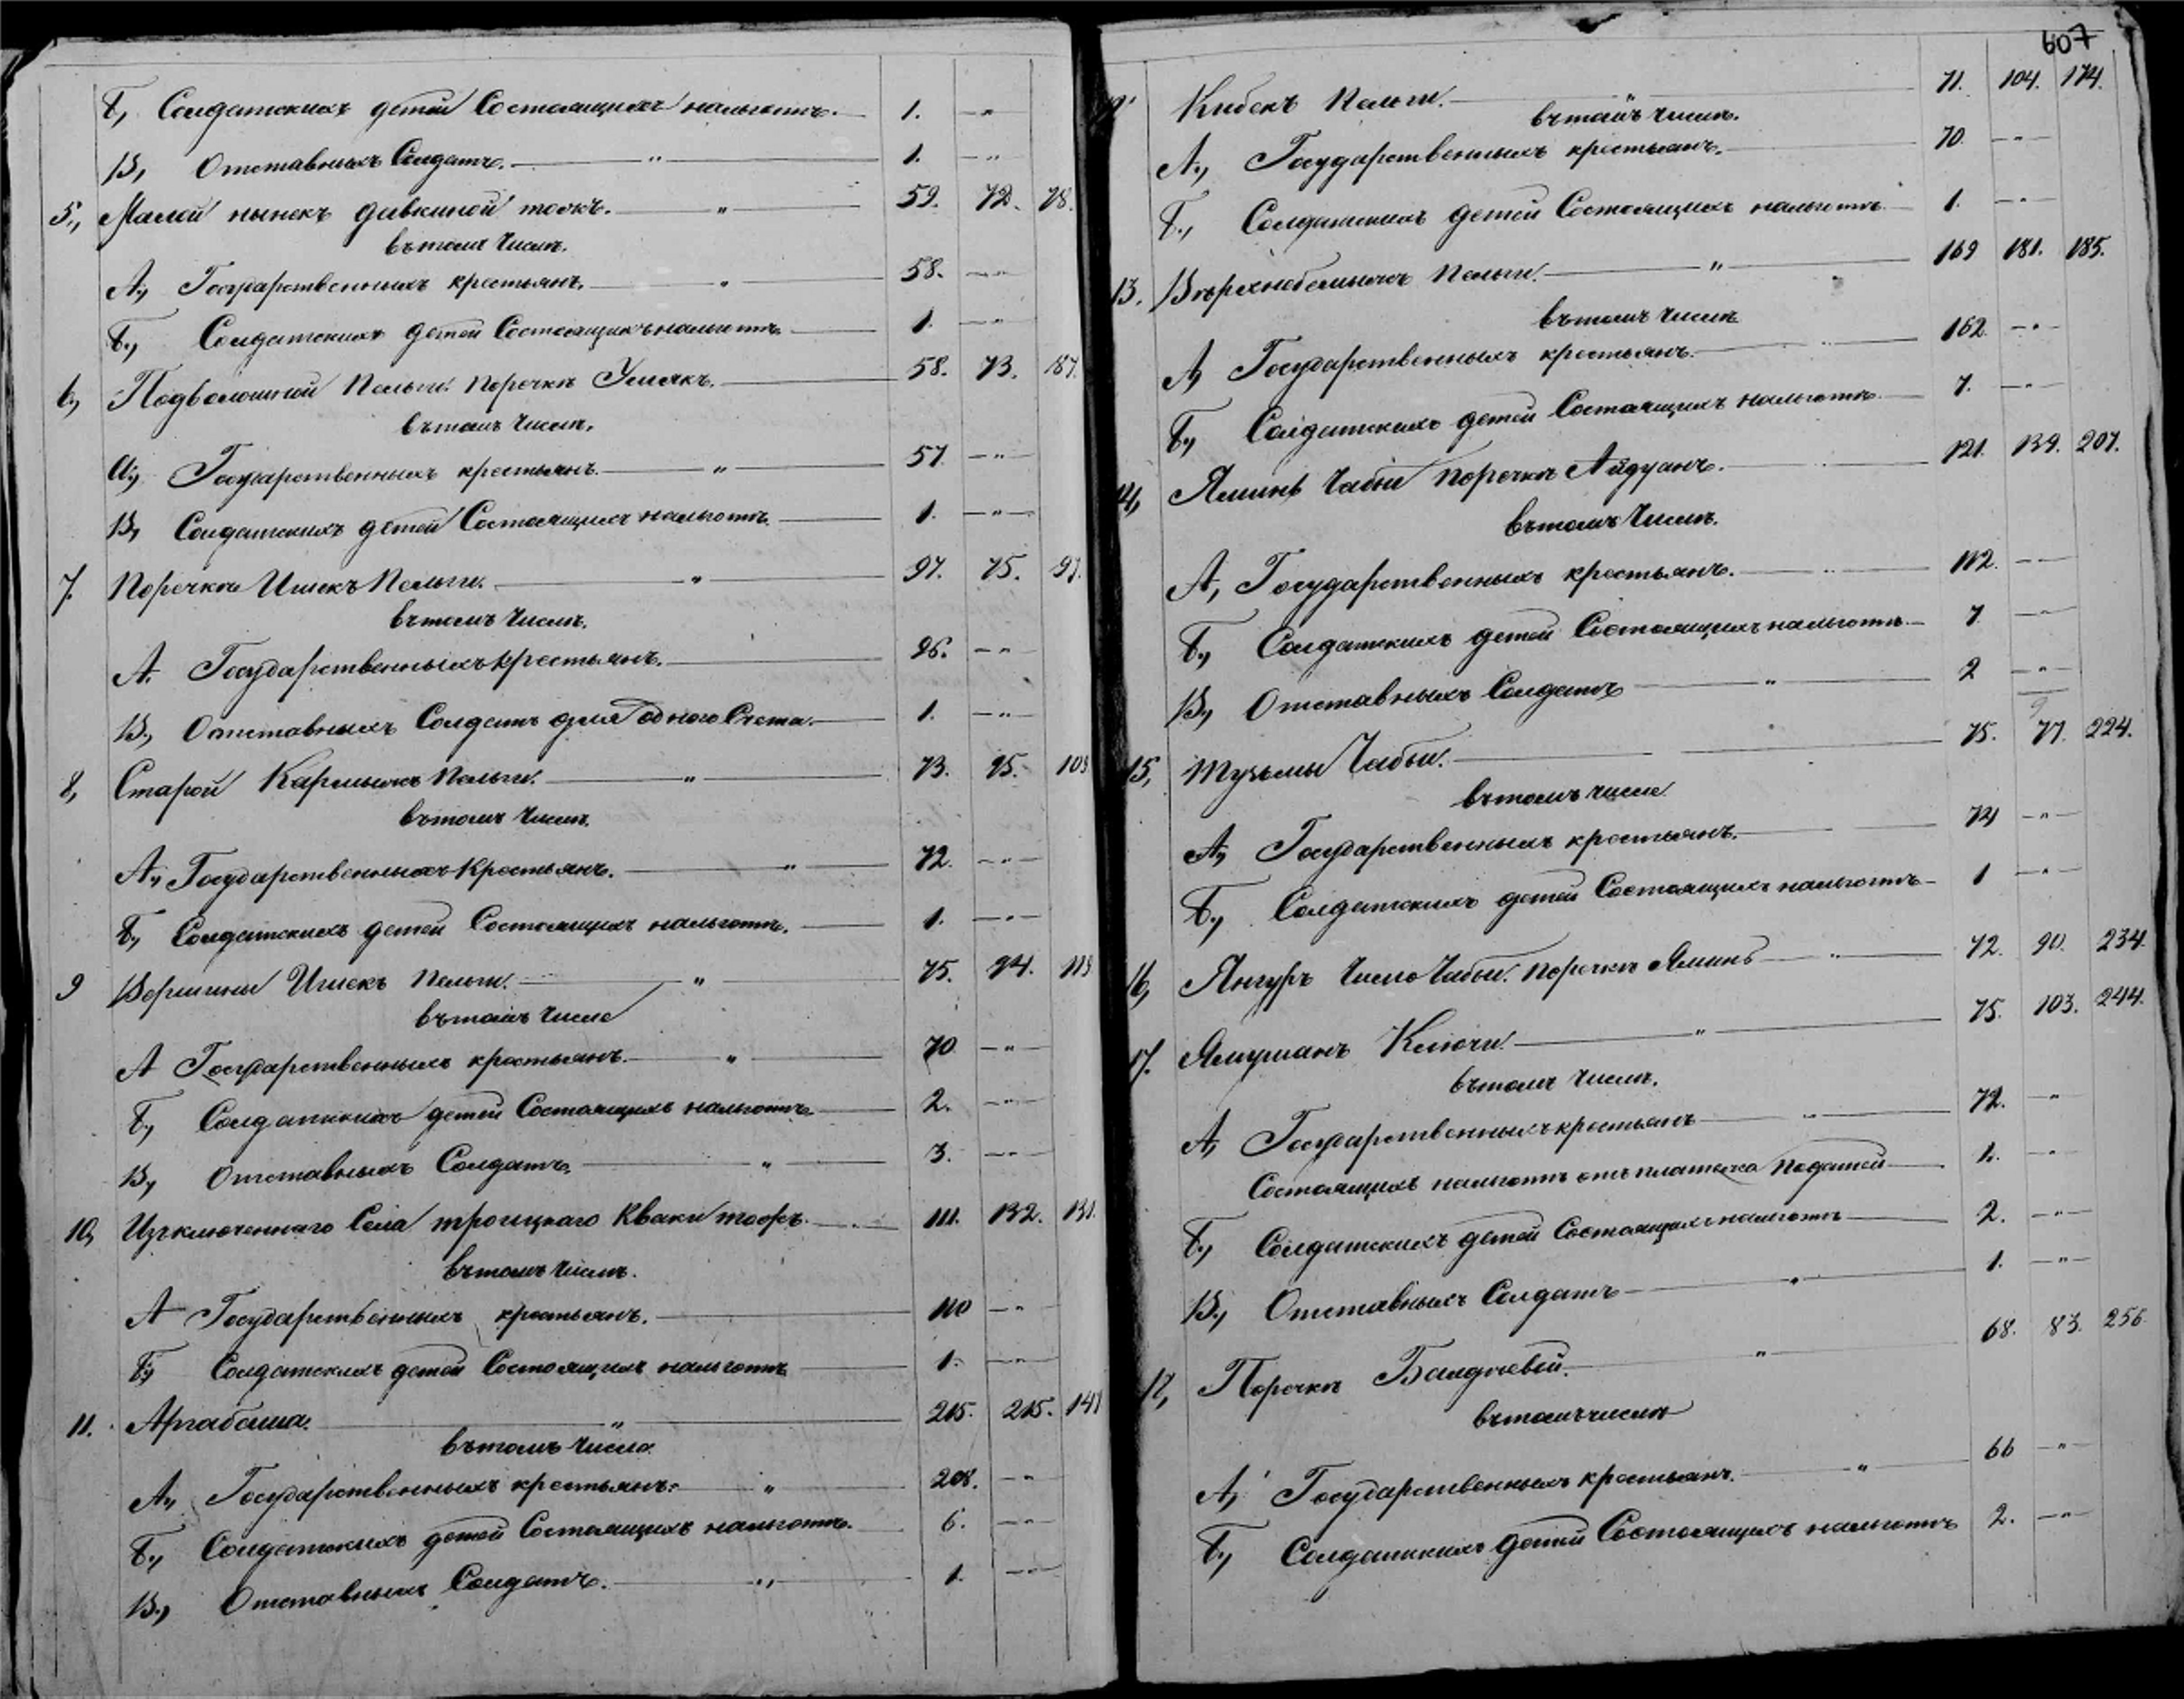 Б., Солдатскихъ детей Состоящихъ нальготѣ. — 1. — „ —
В, Отставныхъ Солдатъ. — „ — 1. — „ —
5., Малой нынекъ девкиной токъ. — „ — 59. 72. 78.
въ томъ числѣ.
А., Государственныхъ крестьянъ. — „ — 58. — „ —
Б., Солдатскихъ детей Состоящихъ нальготѣ — 1. — „ —
6, Подволошной Пельги поречкѣ Умякъ. — 58. 73. 87.
въ томъ числѣ.
А., Государственныхъ крестьянъ. — „ — 57. — „ —
В, Солдатскихъ детей Состоящихъ нальготѣ. — 1. — „ —
7. Поречкѣ Ишекъ Пельги. — „ — 97. 75. 97.
въ томъ числѣ.
А. Государственныхъ крестьянъ. — 96. — „ —
В., Отставныхъ Солдатъ для одного Счета. — 1. — „ —
8, Старой Кармыжъ Пельги. — „ — 73. 95. 103
въ томъ числѣ.
А., Государственныхъ Крестьянъ. — „ — 72. — „ —
Б, Солдатскихъ детей Состоящихъ нальготѣ. — 1. — „ —
9 Вершины Ишекъ Пельги. — „ — 75. 94. 113
въ томъ числе
А Государственныхъ крестьянъ. — „ — 70 — „ —
Б., Солдатскихъ детей Состоящихъ нальготѣ — 2. — „ —
В, Отставныхъ Солдатъ. — „ — 3. — „ —
10, Изъключеннаго Села троицкаго Кваки тожъ. — 111. 132. 131.
въ томъ числѣ.
А Государственныхъ крестьянъ. — 110 — „ —
Б., Солдатскихъ детей Состоящихъ нальготѣ — 1. — „ —
11. Аргабаша. — „ — 215. 215. 141
въ томъ числе
А., Государственныхъ крестьянъ. — „ — 208. — „ —
Б., Солдатскихъ детей Состоящихъ нальготѣ. — 6. — „ —
В., Отставныхъ Солдатъ. — „ — 1. — „ —
607
12. Кибекъ Пельги. — 71. 104. 174.
въ томъ числѣ.
А., Государственныхъ крестьянъ. — 70. — „ —
Б., Солдатскихъ детей Состоящихъ нальготѣ — 1. — „ —
13. Верхнебемыжъ Пельги. — „ — 169 181. 185.
въ томъ числѣ
А, Государственныхъ крестьянъ. — 162. — „ —
Б., Солдатскихъ детей Состоящихъ нальготѣ — 7. — „ —
14, Яминь Чабьи поречкѣ Айдуанъ. — 121. 139. 207.
въ томъ числѣ.
А, Государственныхъ крестьянъ. — 112. — „ —
Б., Солдатскихъ детей Состоящихъ нальготѣ — 7 — „ —
В., Отставныхъ Солдатъ — „ — 2 — „ —
15, Тузьмы Чабьи. — 75. 77. 224.
въ томъ числе
А., Государственныхъ крестьянъ. — 74 — „ —
Б., Солдатскихъ детей Состоящихъ нальготѣ — 1 — „ —
16, Янгуръ Чабьи. поречкѣ Яминь — „ — 72. 90. 234
17. Ямурманъ Ключи. — „ — 75. 103. 244.
въ томъ числѣ.
А, Государственныхъ крестьянъ — „ — 72. — „ —
Состоящихъ нальготѣ отъ платежа податей — „ —
Б., Солдатскихъ детей Состоящихъ нальготѣ — 2. — „ —
В., Отставныхъ Солдатъ — „ — 1. — „ —
Поречкѣ Балдеевой. — „ — 68. 83. 256
въ томъ числѣ
А, Государственныхъ крестьянъ. — „ — 66 — „ —
Б., Солдатскихъ детей Состоящихъ нальготѣ 2. — „ —